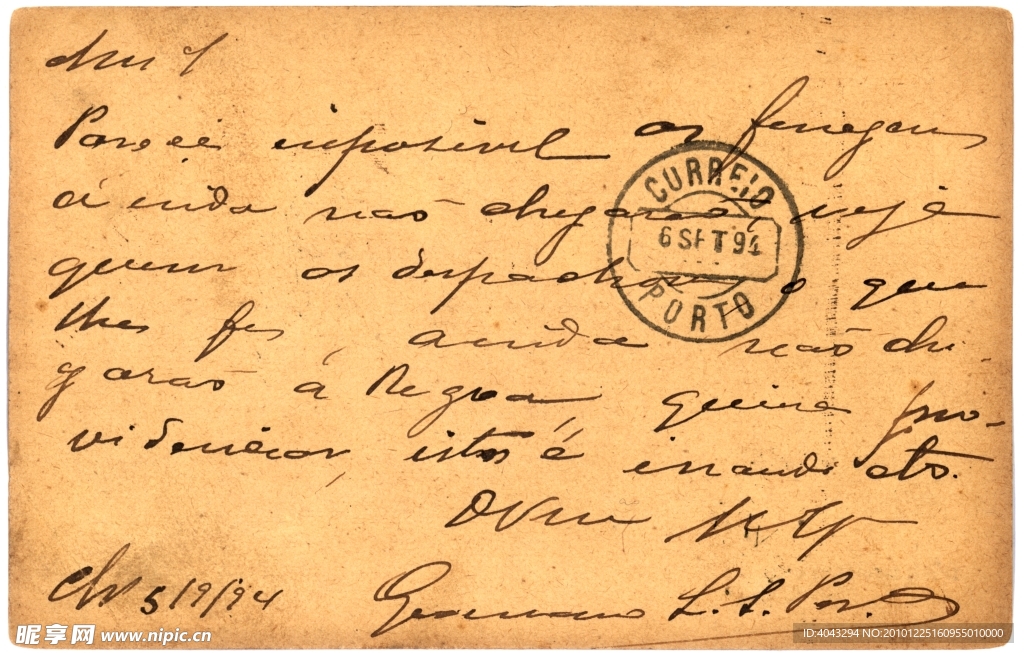 Parece impossivel os ferragens
ainda não chegarão, veja
quem os despachou, o que
lhes fez, ainda não che-
garão á Regoa, queira pro-
videnciar, isto é
5/9/94
CORREIO
6 SET 94
PORTO
昵享网 www.nipic.cn
ID:4043294 NO:20101225160955010000